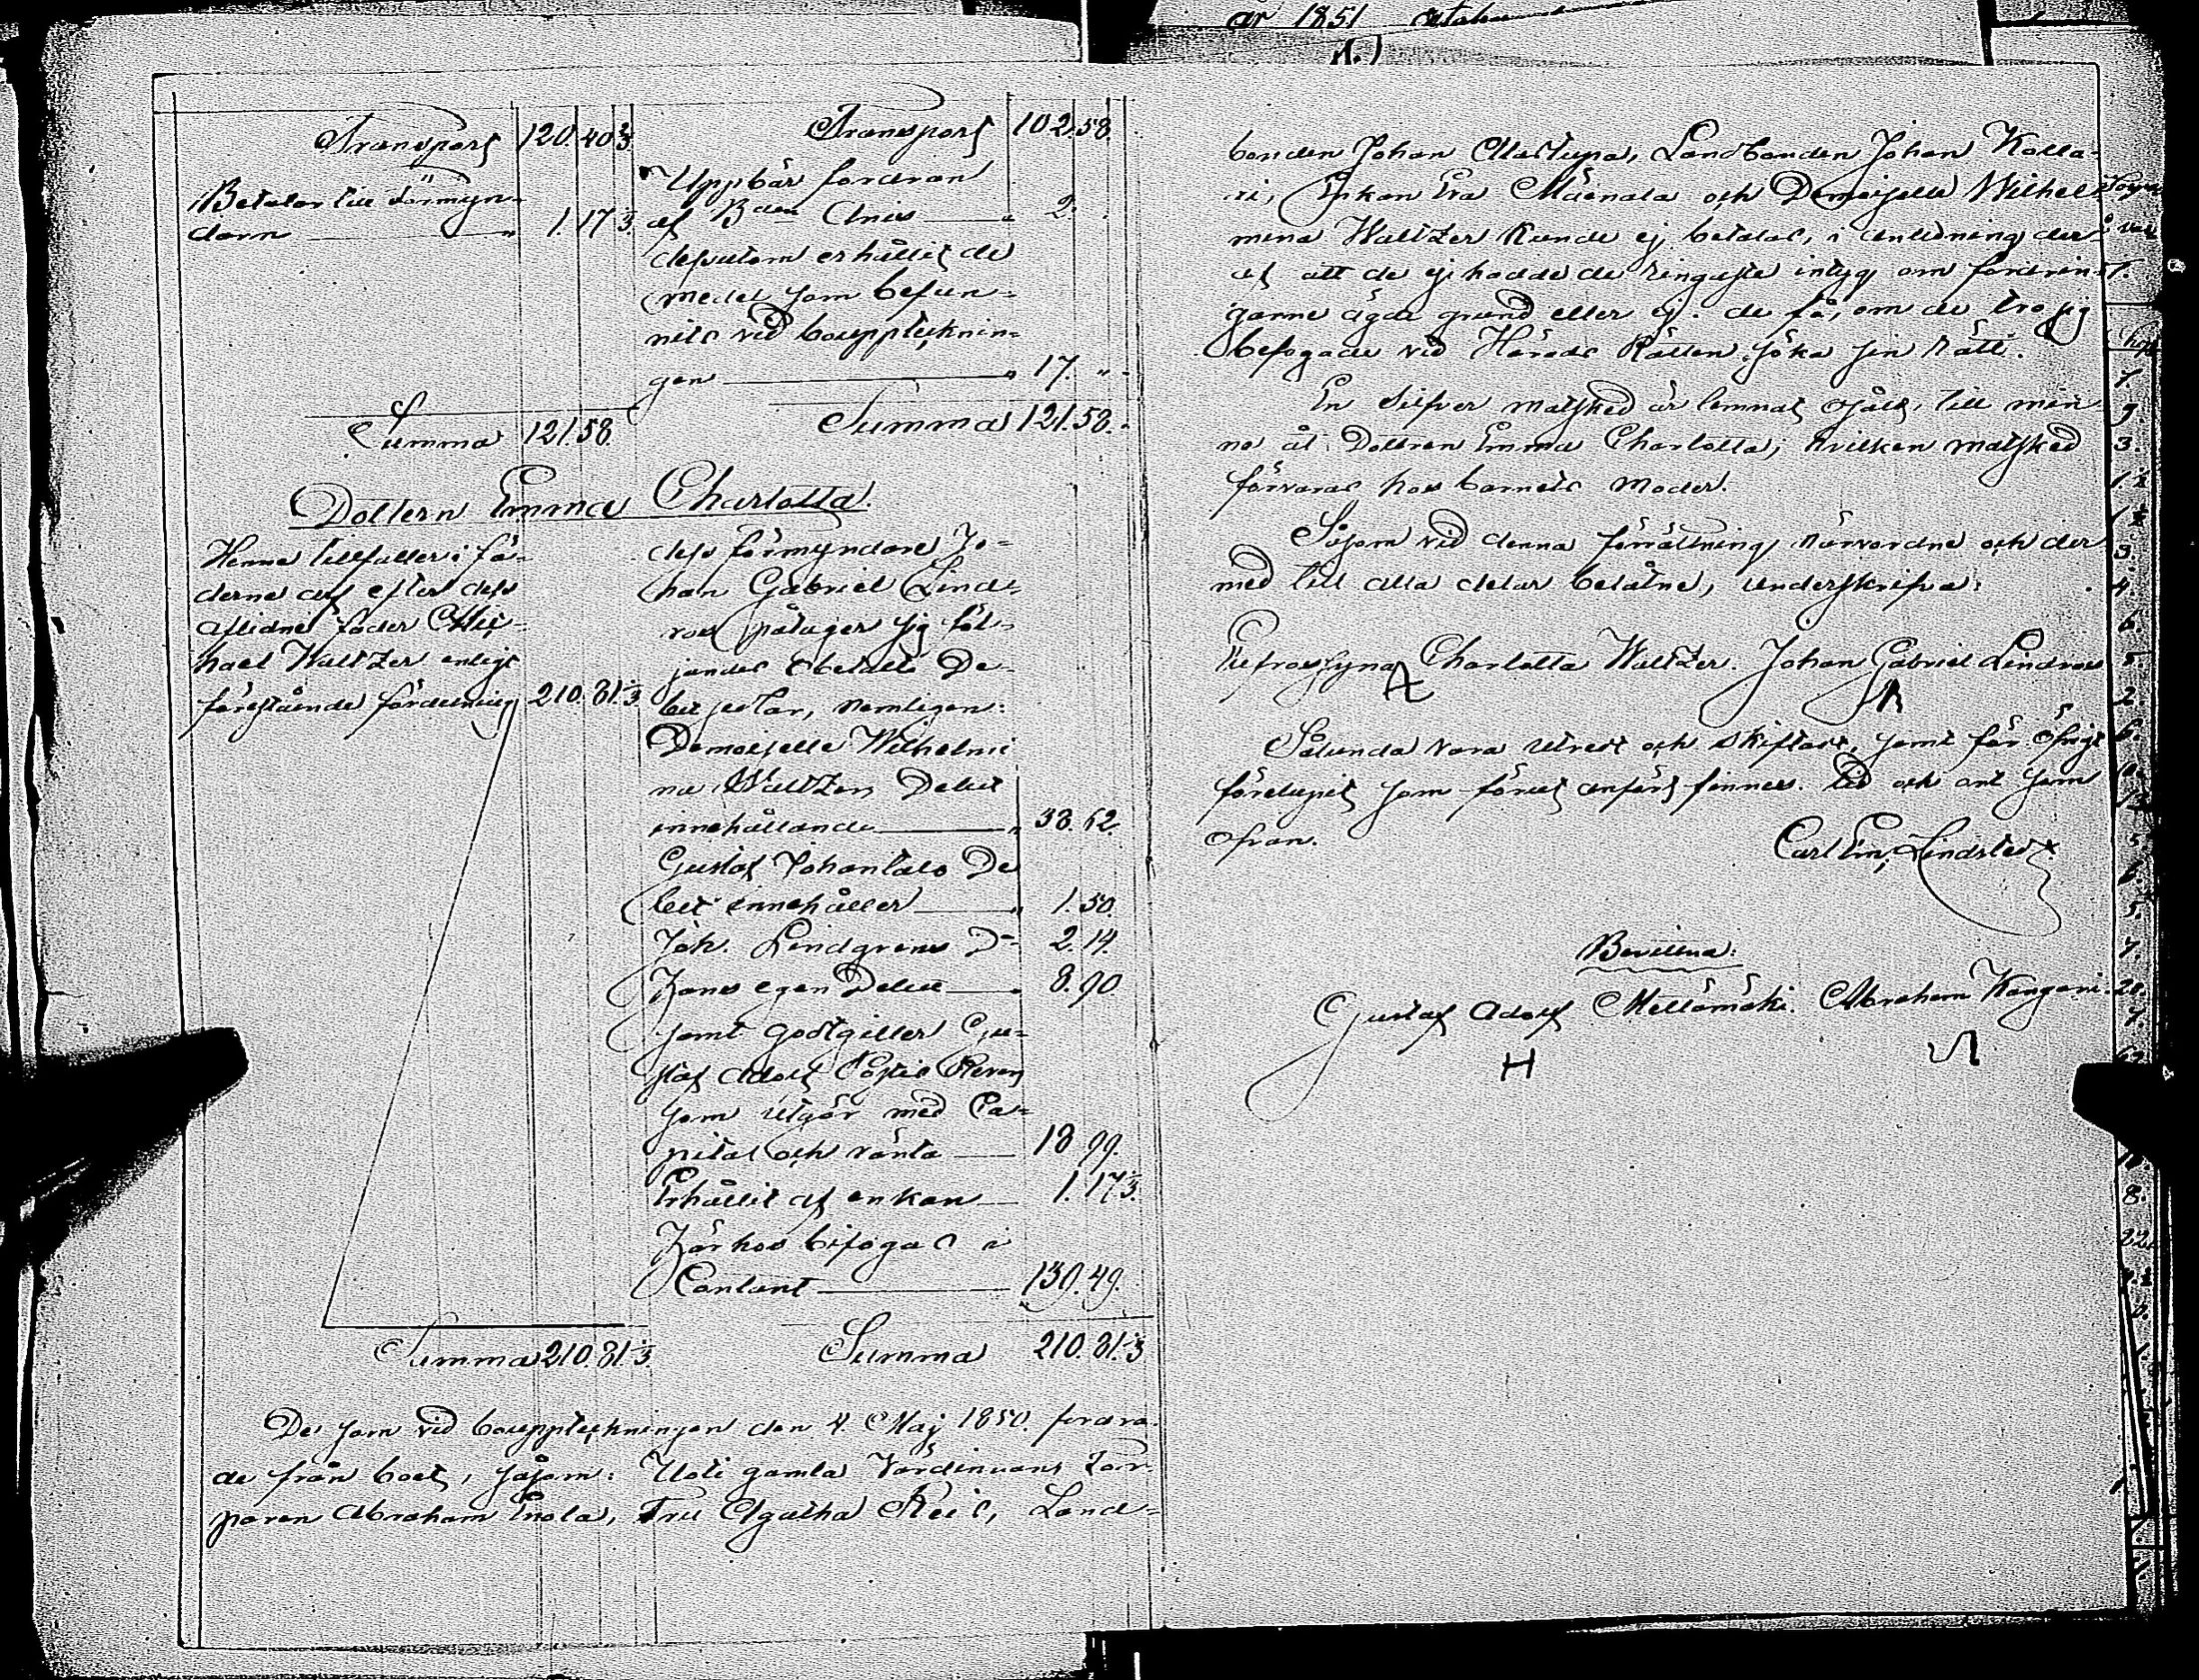 år 1851
Transport 120. 40 2/3
Betalar till Förmyn-
darn 1. 17 1/3
Summa 121. 58.
Transport 102. 58
Uppbär fordran
af 2.
dessutom erhållit de
medel som befun-
nits vid boupptecknin-
gen 17. "
Summa 121. 58.
Dottern Emma Charlotta.
Henne tillfaller i fä-
derne arf efter dess
aflidne fader Mic-
hael Waltzer enligt
förestående fördelning 210. 81 1/3
Summa 210. 81 1/3
dess förmyndare Jo-
han Gabriel Lind-
roos påtager sig föl-
jande obetalte De-
bet sedlar, nemligen:
Demoiselle Wilhelmi
na Waltzers Debet
innehållande 38. 62.
Gustaf Johantalo De
bet innehåller 1. 50.
Joh. Lindgrens Do 2. 14.
Hans egen Debet 8. 90.
samt godtgiller Gu-
staf Adolf Revers
som utgör med Ca-
pital och ränta 18 99.
Erhållit af enkan 1. 17 1/3.
Härhos bifogas i
Contant 139. 49.
Summa 210. 81 1/3
De som vid bouppteckningen den 4. Maj 1850. fordra-
de från boet, såsom: Uoti gamla Värdinnan, Torp-
paren Abraham Knola, Fru Agatha Reis, Land-
bonden Johan Alastupa, Landbonden Johan Kolla-
ri, Enkan Eva Mäenala och Demoiselle Wilhel-
mina Waltzer kunde ej betalas, i anledning der-
af att de ej hade de ringaste intyg om fordrin-
garne äga grund eller ej. de få, om de tro sig
befogade vid Härads Rätten söka sin rätt.
En Silfver matsked är lemnat osåld, till min-
ne åt Dottren Emma Charlotta, hvilken matsked
förvaras hos barnets moder.
Såsom vid denna förrättning närvardne och der
med till alla delar belåtne, underskrifva:
Charlotta Waltzer. Johan Gabriel Lindroos
Sålunda vara utredt och skiftadt, samt för öfrigt
förelupit som förut anfört finnes. tid och ort som
ofvan.
Carl Em. Lindstedt.
Bevittna:
Gustaf Adolf Mellömäki. Abraham Kangari.
H